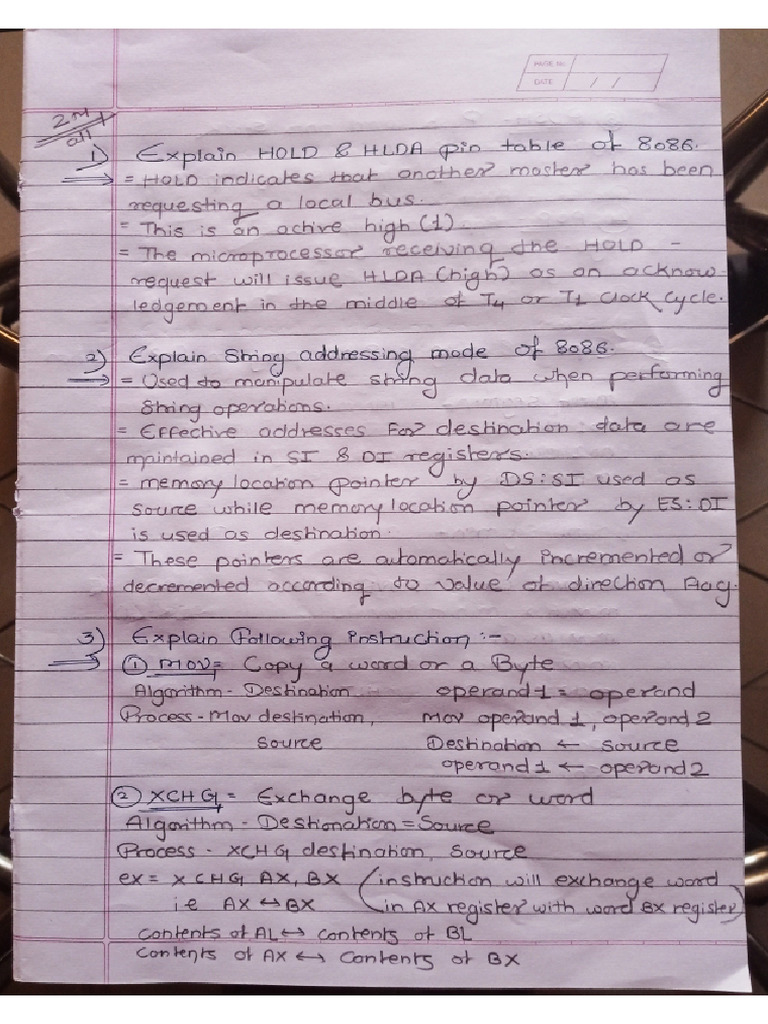 PAGE No.
DATE / /
2M
all
1) Explain HOLD & HLDA pin table of 8086.
→ = HOLD indicates that another master has been
requesting a local bus.
= This is an active high (1).
= The microprocessor receiving the HOLD -
request will issue HLDA (high) as an acknow-
ledgement in the middle of T4 or T1 Clock Cycle.
2) Explain String addressing mode of 8086.
→ = Used to manipulate string data when performing
String operations.
= Effective addresses for destination data are
maintained in SI & DI registers.
= memory location pointer by DS:SI used as
source while memory location pointer by ES:DI
is used as destination.
= These pointers are automatically incremented or
decremented according to value of direction flag.
3) Explain Following instruction :-
→ ① MOV = Copy a word or a Byte
Algorithm - Destination operand 1 = operand
Process - Mov destination, mov operand 1, operand 2
source Destination ← source
operand 1 ← operand 2
② XCHG = Exchange byte or word
Algorithm - Destionation = Source
Process - XCHG destination, Source
ex = XCHG AX, BX (instruction will exchange word
i.e AX ↔ BX in AX register with word BX register)
contents of AL ↔ contents of BL
contents of AX ↔ contents of BX